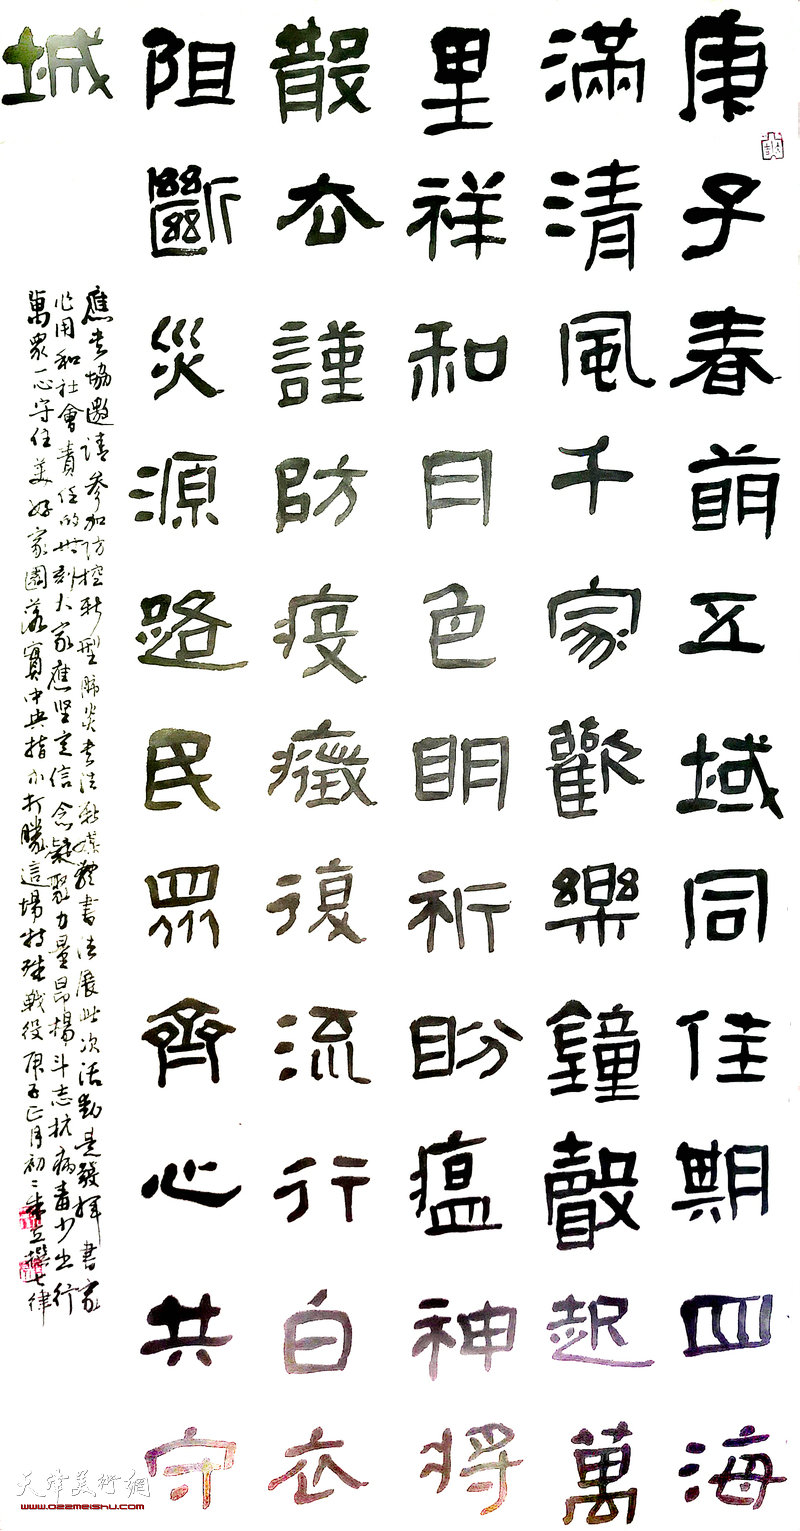 庚子春萌五域同佳期四海
滿清風千家歡樂鐘聲起萬
里祥和月色明祈盼瘟神将
散去謹防疫癥復流行白衣
阻斷災源路民眾齊心共守
城
應書協邀請參加防控新型肺炎書法新媒體書法展此次活動是發揮書家
作用和社會責任的時刻大家應堅定信念凝聚力量昂揚斗志抗病毒少出行
萬眾一心守住美好家園落實中央指示打勝這場特殊戰役庚子正月初二撰七律
天津美術網
www.022meishu.com